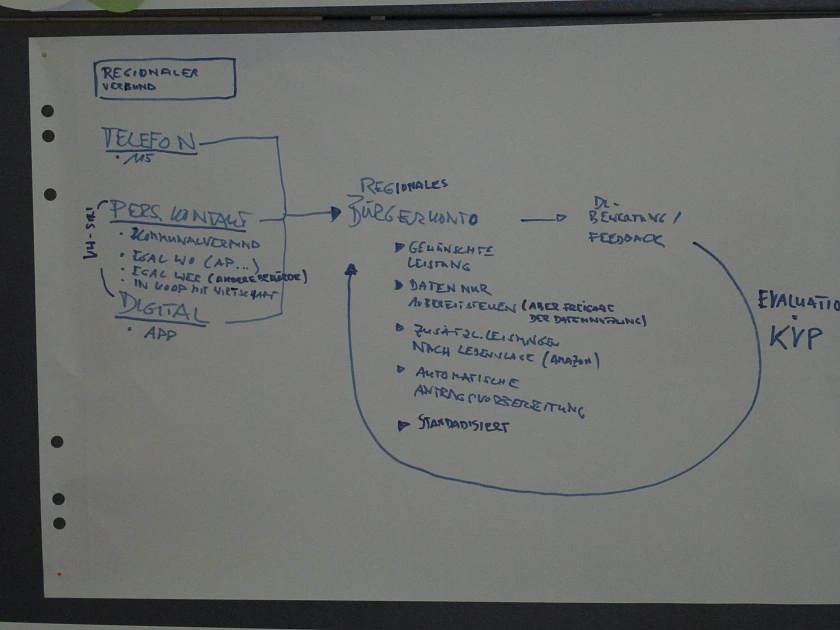 REGIONALER
VERBUND
TELEFON
• 115
PERS. KONTAKT
• KOMMUNALVERBUND
• EGAL WO (AP...)
• EGAL WER (ANDERE BEHÖRDE)
IN KOOP MIT WIRTSCHAFT
DIGITAL
• APP
REGIONALES
BÜRGERKONTO
GEWÜNSCHTE
LEISTUNG
DATEN NUR
(ABER FREIGABE
DER DATENNUTZUNG)
ZUSÄTZL. LEISTUNGEN
NACH LEBENSLAGE (AMAZON)
AUTOMATISCHE
ANTRAGSVORBEREITUNG
STANDADISIERT
DL-
BEWERTUNG /
FEEDBACK
EVALUATIO
KVP